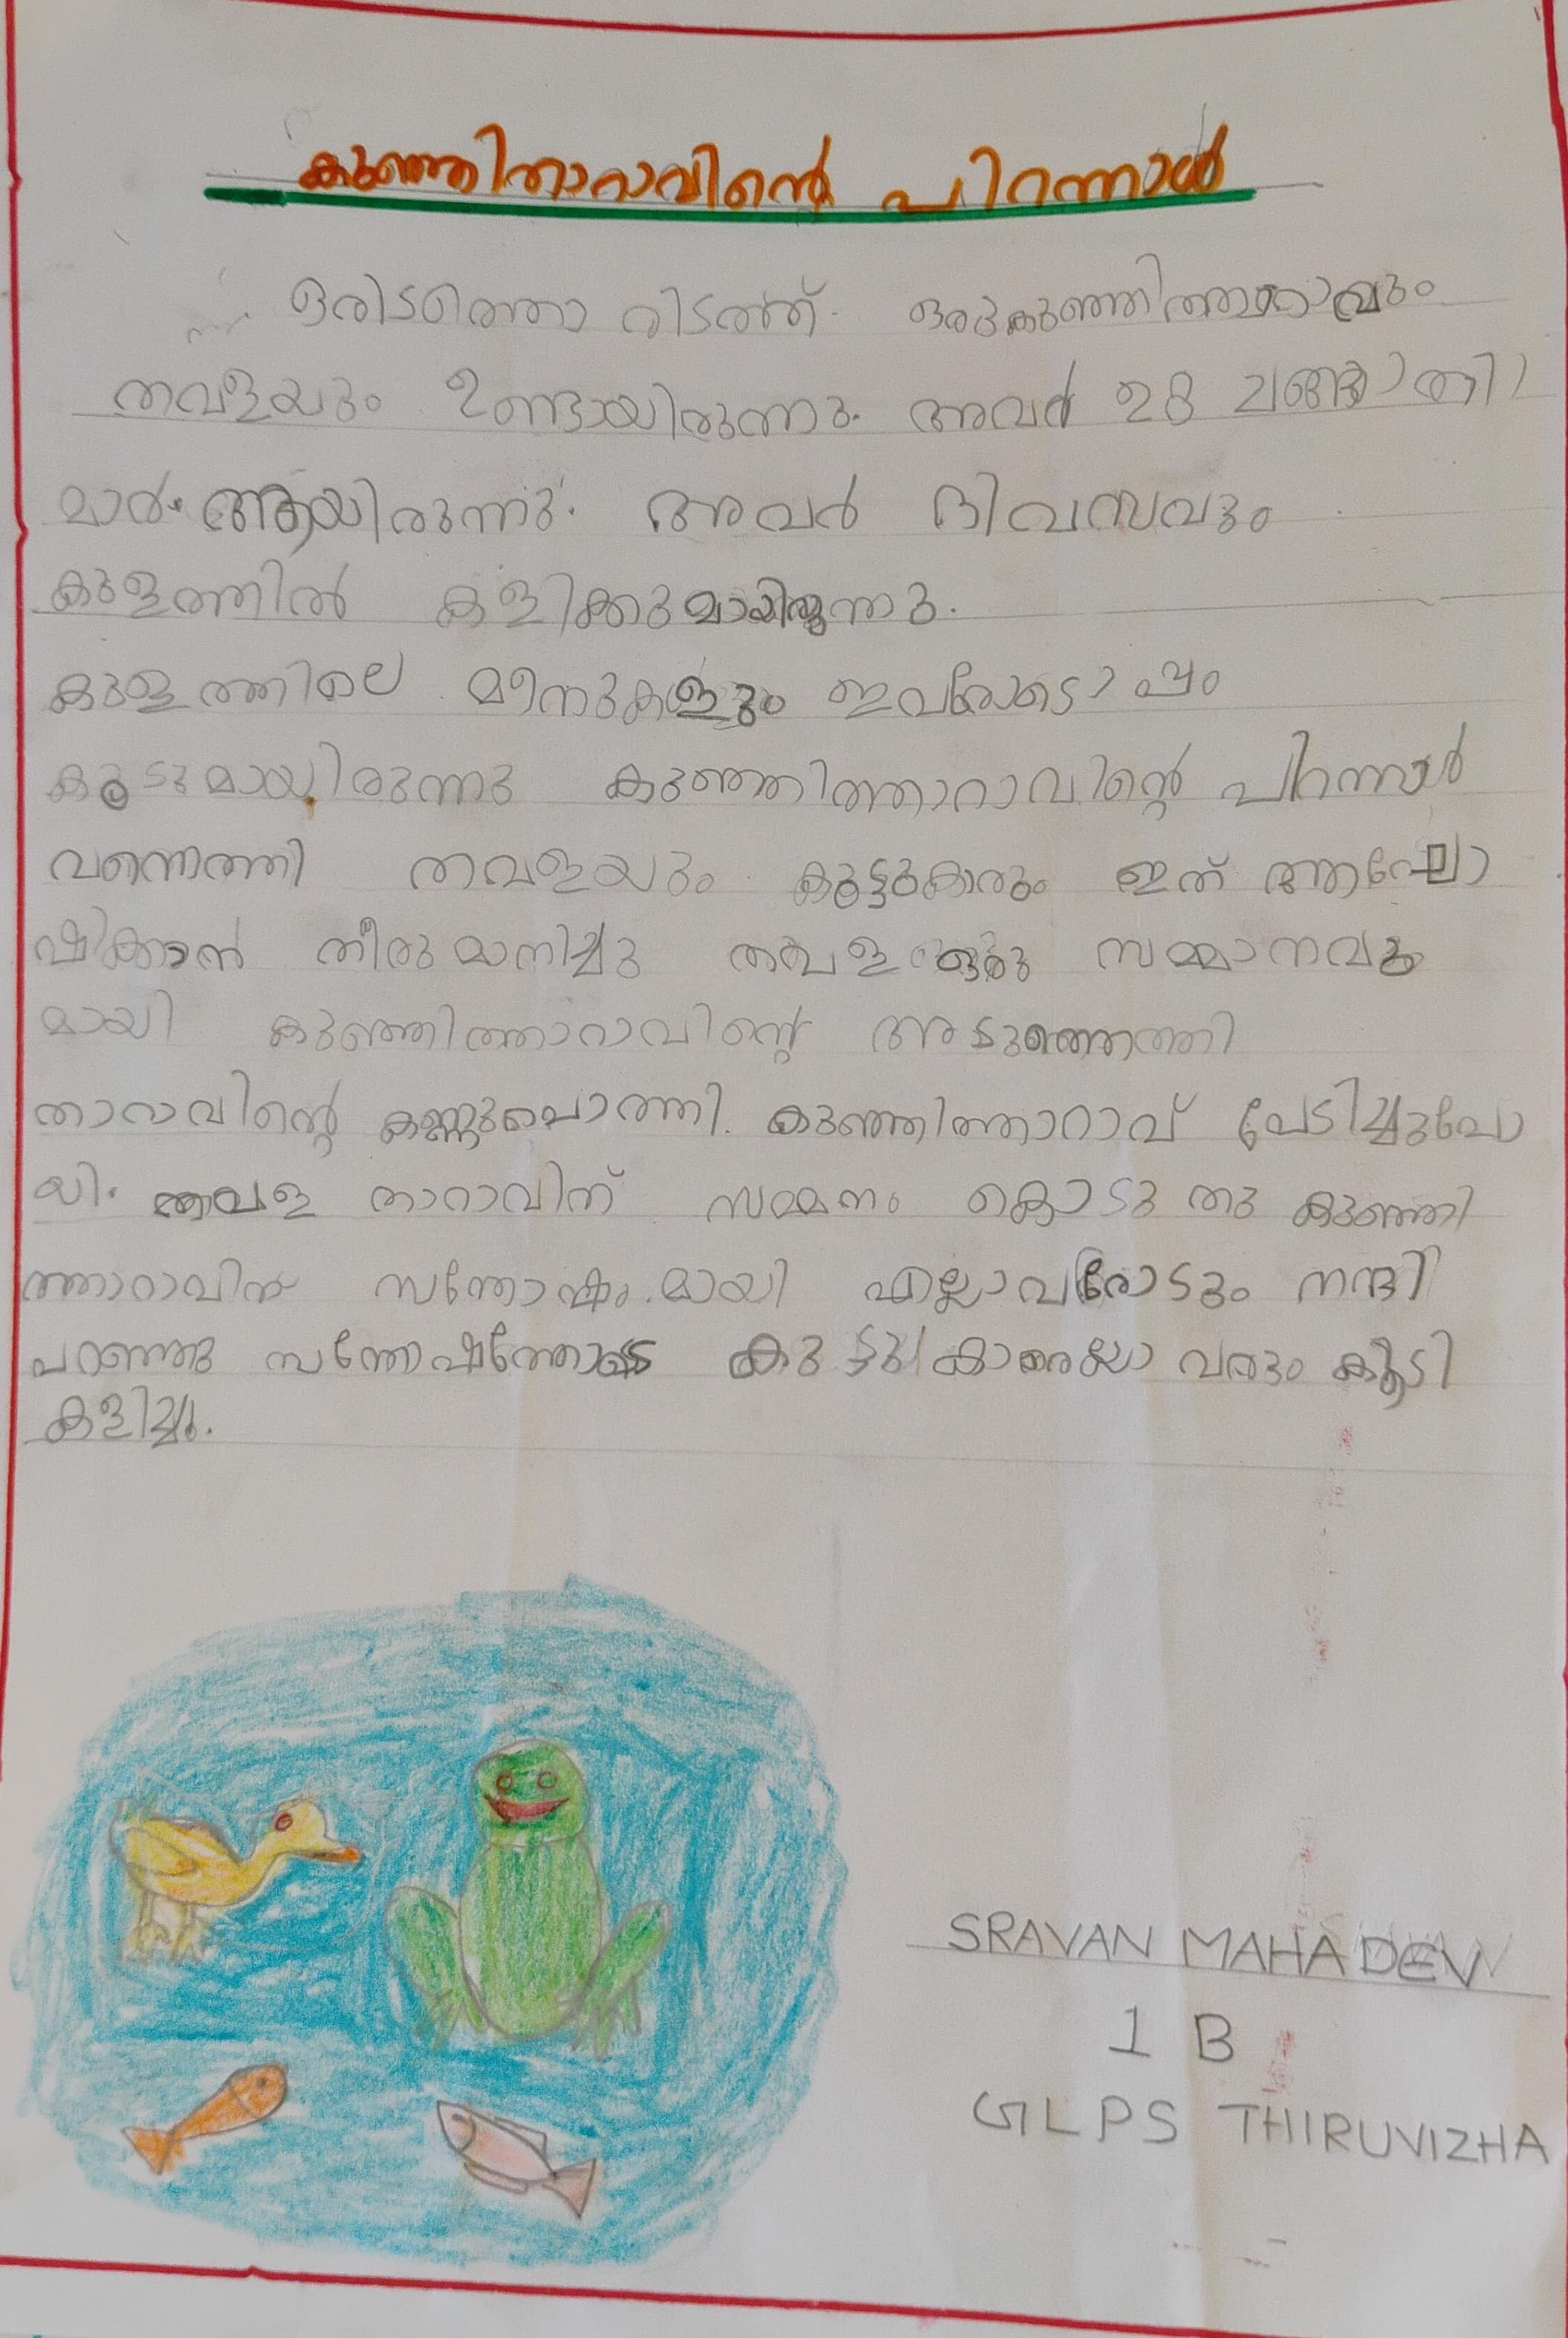 കുഞ്ഞിതാറാവിന്റെ പിറന്നാൾ
ഒരിടത്തൊരിടത്ത് ഒരുകുഞ്ഞിത്താറാവും
തവളയും ഉണ്ടായിരുന്നു. അവർ ഉറ്റ ചങ്ങാതി
മാർ ആയിരുന്നു. അവർ ദിവസവും
കുളത്തിൽ കളിക്കുമായിരുന്നു.
കുളത്തിലെ മീനുകളും ഇവരോടൊപ്പം
കൂടുമായിരുന്നു കുഞ്ഞിത്താറാവിന്റെ പിറന്നാൾ
വന്നെത്തി തവളയും കൂട്ടുകാരും ഇത് ആഘോ
ഷിക്കാൻ തീരുമാനിച്ചു തവള ഒരു സമ്മാനവു
മായി കുഞ്ഞിത്താറാവിന്റെ അടുത്തെത്തി
താറാവിന്റെ കണ്ണുപൊത്തി. കുഞ്ഞിത്താറാവ് പേടിച്ചുപോ
യി. തവള താറാവിന് സമ്മനം കൊടുതു കുഞ്ഞി
ത്താറാവിന് സന്തോഷം.മായി എല്ലാവരോടും നന്ദി
പറഞ്ഞു സന്തോഷത്തോടെ കൂട്ടുകാരെല്ലാവരും കൂടി
കളിച്ചു.
SRAVAN MAHADEV
1 B
GLPS THIRUVIZHA